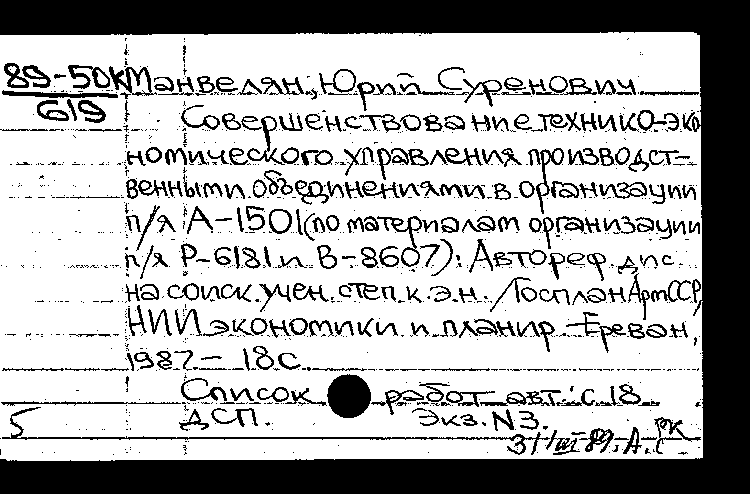 89-50К Манвелян, Юрий Суренович
619
Совершенствование технико-эко
номического управления производст-
венными объединениями в организации
п/я А-1501 (по материалам организации
п/я Р-6181 и В-8607): Автореф. дис.
на соиск. учен. степ. к.э.н. / Госплан АрмССР,
НИИ экономики и планир. - Ереван,
1987 - 18 с.
Список работ авт.: с. 18
5 ДСП. Экз. N3.
31/III 89. А. С РК